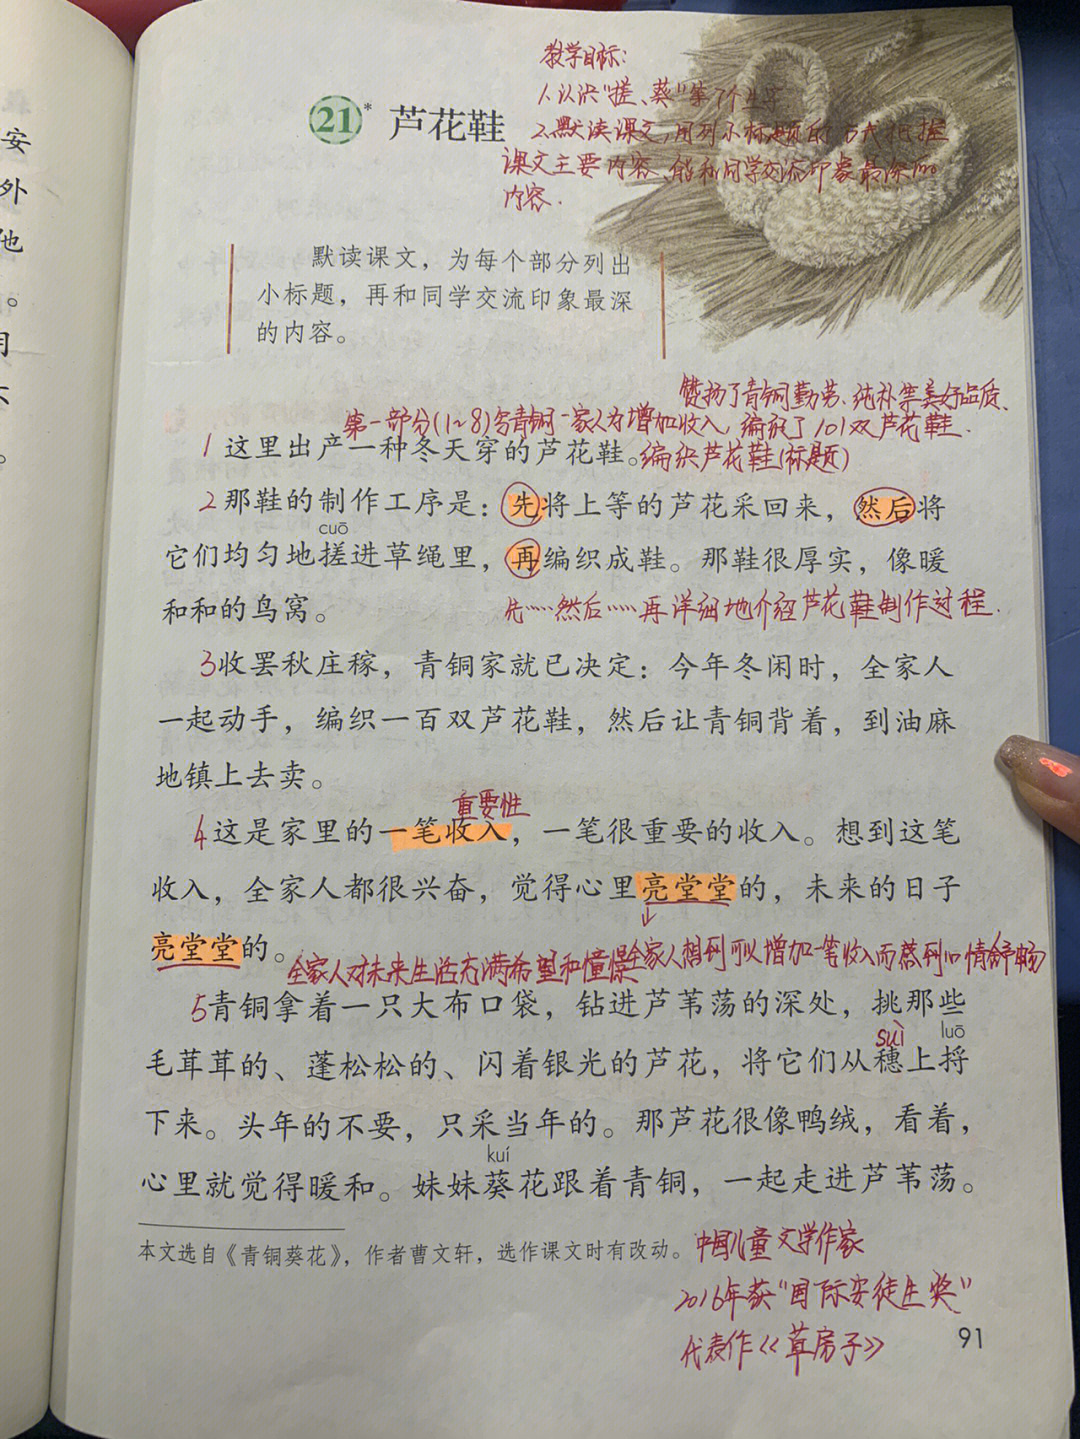 安
外
他
。
教学目标:
1.认识“搓、葵”等7个生字
21* 芦花鞋
2.默读课文,用列小标题的方式把握
课文主要内容、能和同学交流印象最深的
内容.
默读课文，为每个部分列出
小标题，再和同学交流印象最深
的内容。
赞扬了青铜勤劳、纯朴等美好品质、
第一部分(1~8)写青铜一家人为增加收入,编织了101双芦花鞋.
1这里出产一种冬天穿的芦花鞋。编织芦花鞋(标题)
2那鞋的制作工序是：先将上等的芦花采回来，然后将
cuō
它们均匀地搓进草绳里，再编织成鞋。那鞋很厚实，像暖
和和的鸟窝。
先……然后……再详细地介绍芦花鞋制作过程.
3收罢秋庄稼，青铜家就已决定：今年冬闲时，全家人
一起动手，编织一百双芦花鞋，然后让青铜背着，到油麻
地镇上去卖。
重要性
4这是家里的一笔收入，一笔很重要的收入。想到这笔
收入，全家人都很兴奋，觉得心里亮堂堂的，未来的日子
亮堂堂的。
全家人对未来生活充满希望和憧憬
全家人想到可以增加一笔收入而感到心情舒畅
5青铜拿着一只大布口袋，钻进芦苇荡的深处，挑那些
suì luō
毛茸茸的、蓬松松的、闪着银光的芦花，将它们从穗上捋
下来。头年的不要，只采当年的。那芦花很像鸭绒，看着，
kuí
心里就觉得暖和。妹妹葵花跟着青铜，一起走进芦苇荡。
本文选自《青铜葵花》，作者曹文轩，选作课文时有改动。
中国儿童文学作家
2016年获“国际安徒生奖”
代表作《草房子》
91